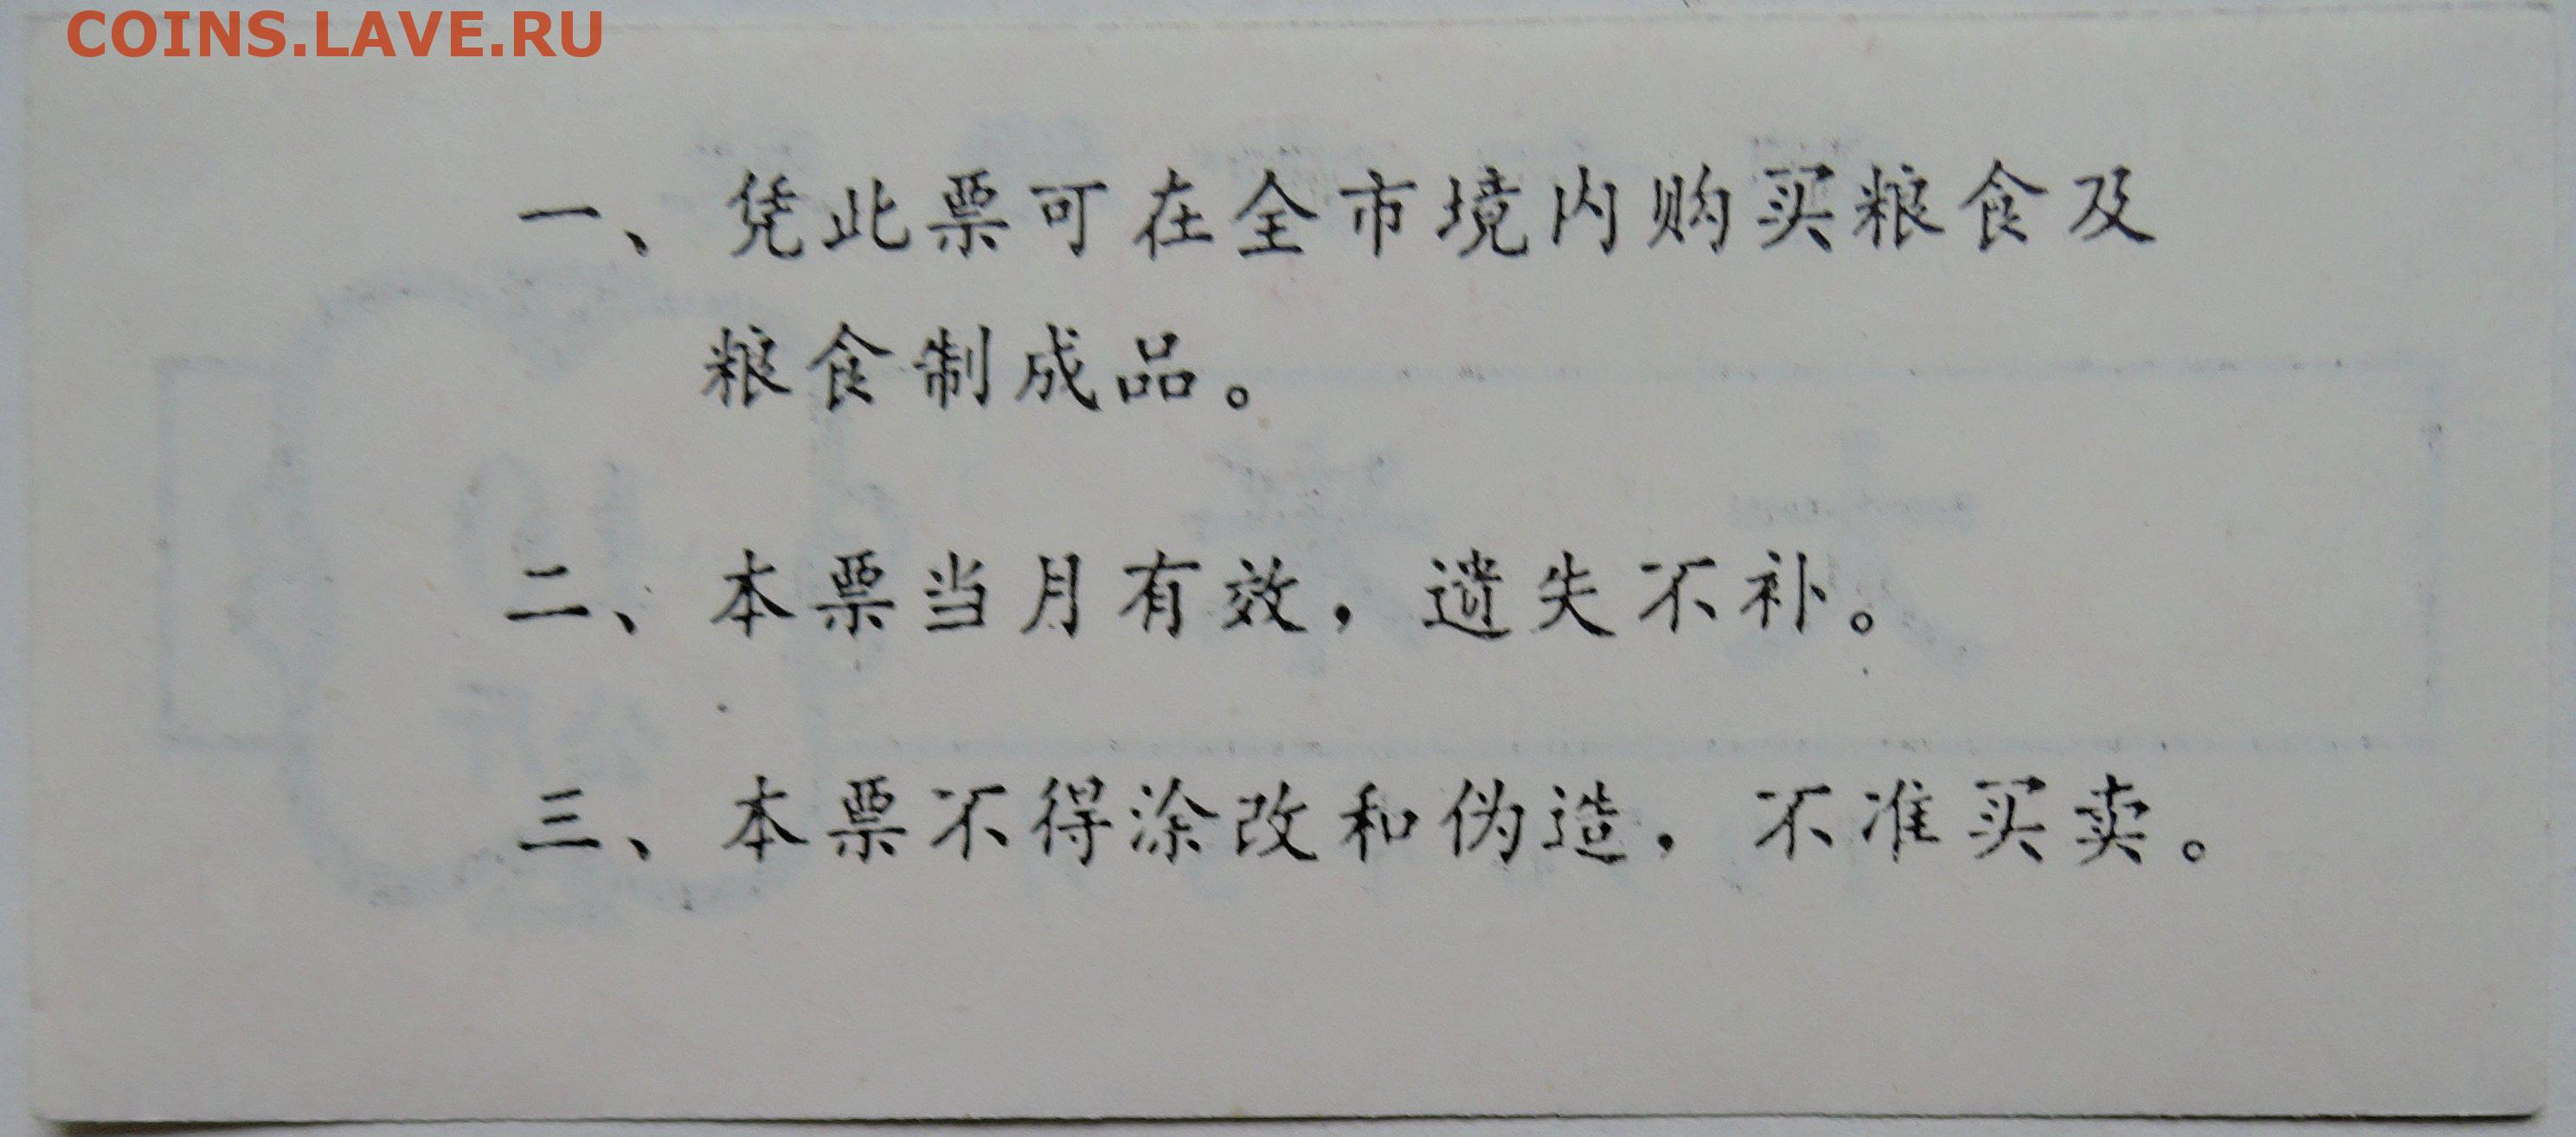 COINS.LAVE.RU
一、凭此票可在全市境内购买粮食及
粮食制成品。
二、本票当月有效，遗失不补。
三、本票不得涂改和伪造，不准买卖。